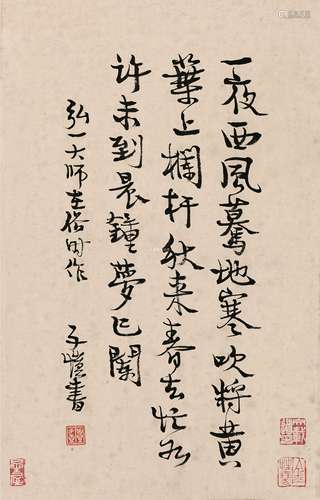 一夜西風驀地寒吹將黃
葉上欄杆秋来春去忙如
许未到晨鐘夢已闌
弘一大師在俗时作
子愷書